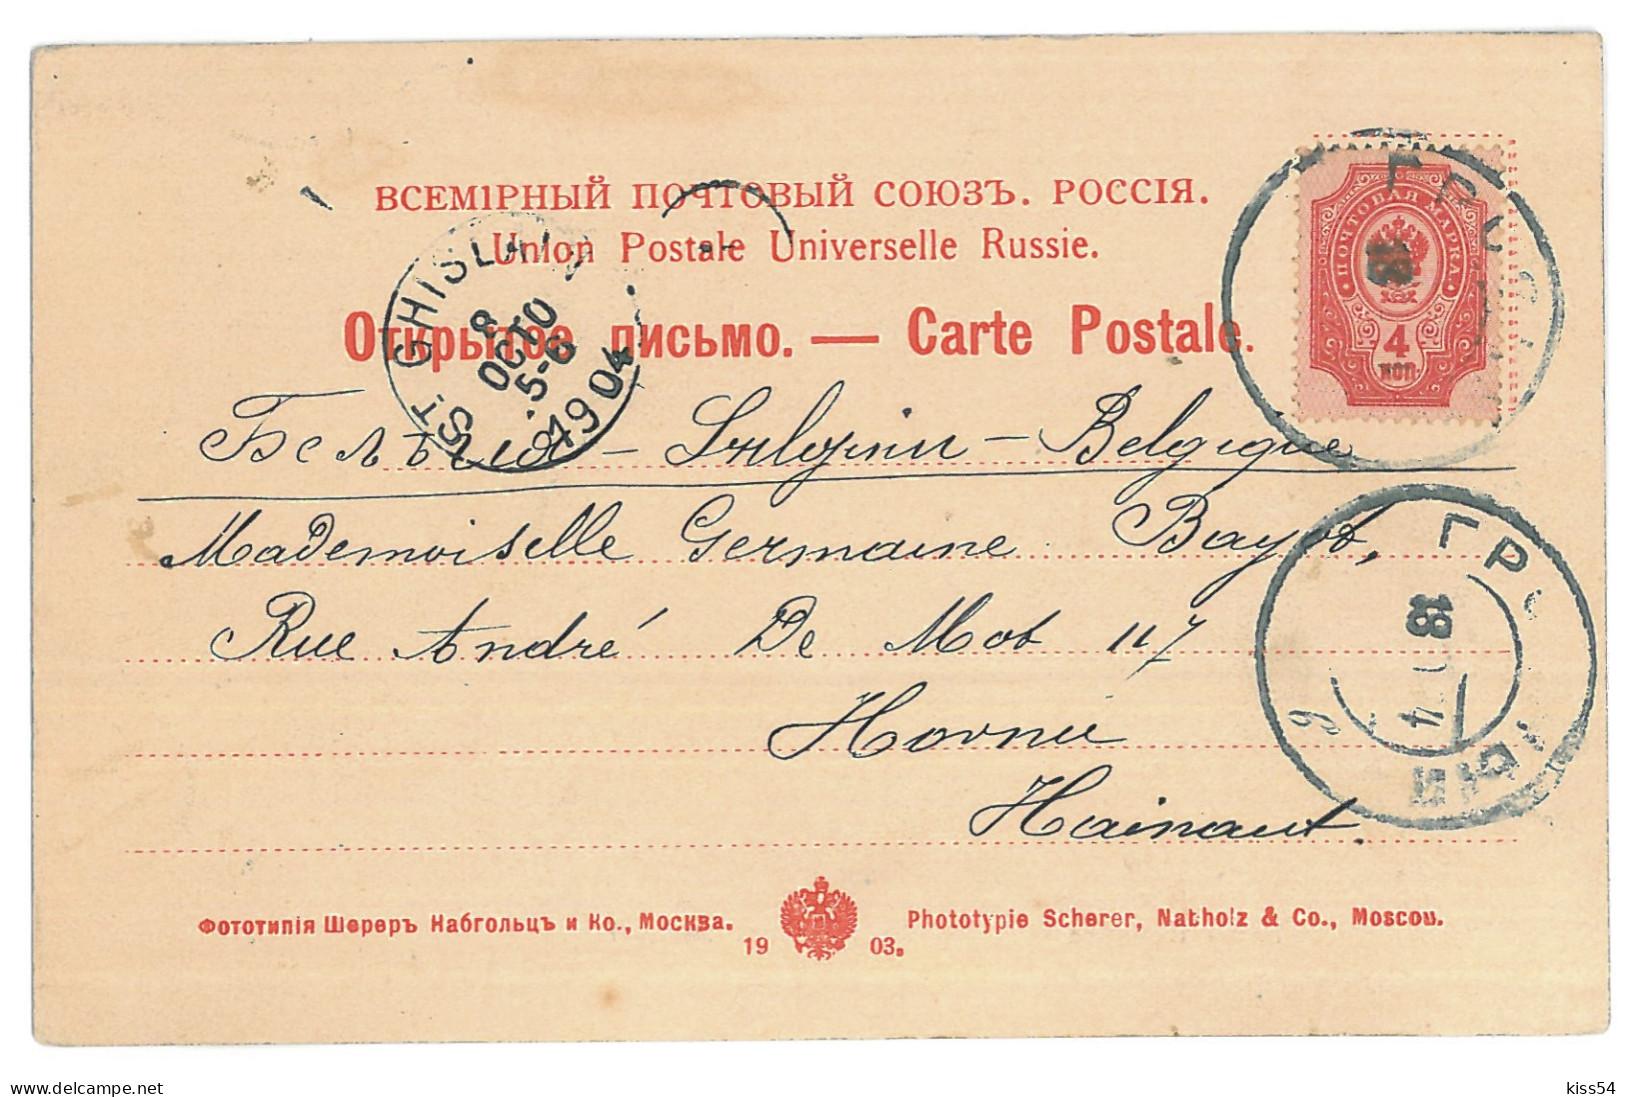 ВСЕМІРНЫЙ ПОЧТОВЫЙ СОЮЗЪ. РОССІЯ.
Union Postale Universelle Russie.
Открытое письмо. — Carte Postale.
ПОЧТОВАЯ МАРКА
4
КОП.
18
ST. GHISLAIN
8
OCTO
5-6
1904
Бельгія – – Belgique
Mademoiselle Germaine Bayot,
Rue André De Mot 117
Hornu
Hainaut
ГРО
18
4
Фототипія Шереръ Набгольцъ и Ко., Москва. 1903. Phototypie Scherer, Nabholz & Co., Moscou.
delcampe.net
kiss54